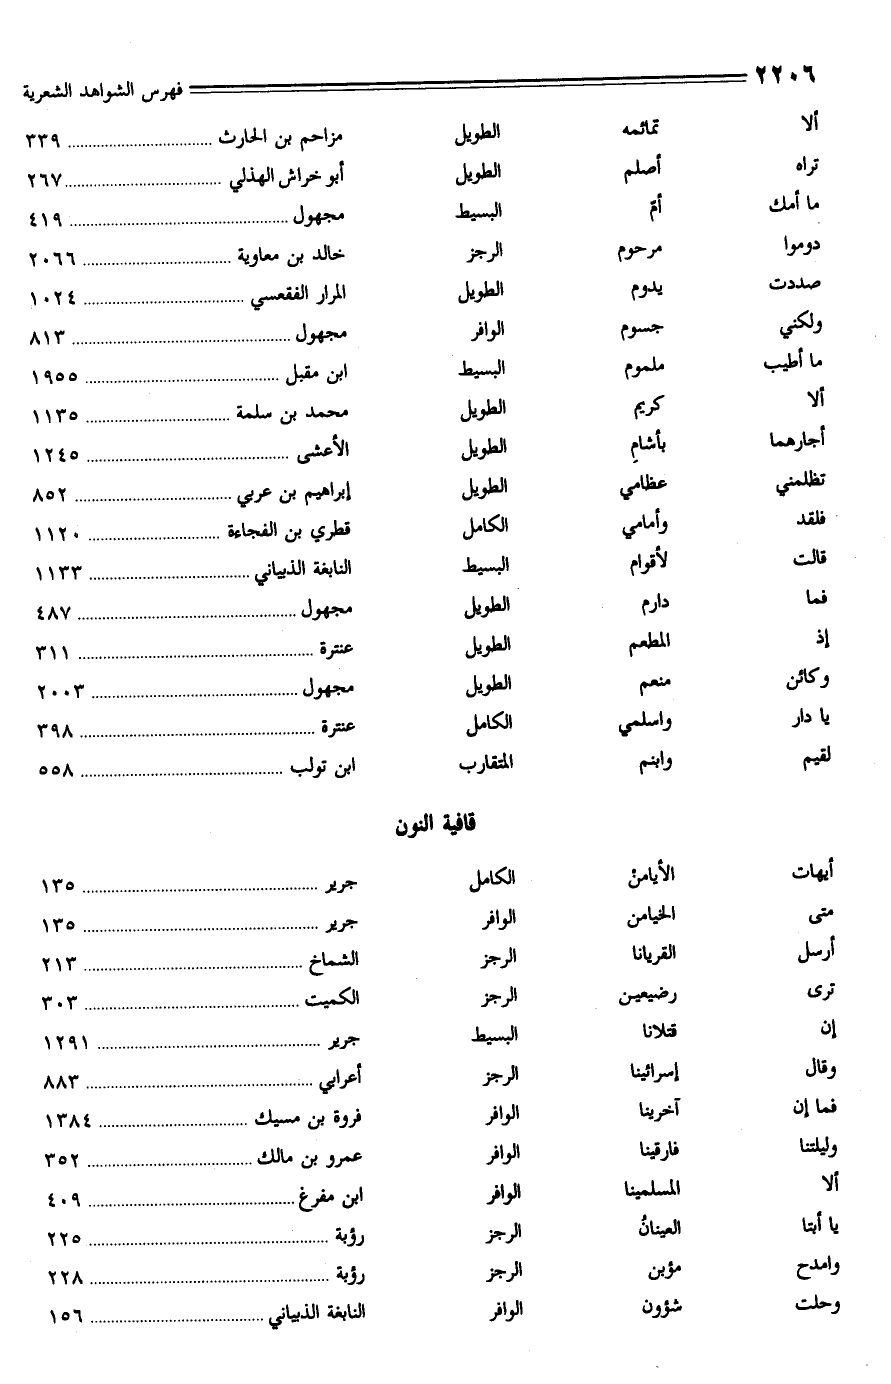 ٢٢٠٦ فهرس الشواهد الشعرية
ألا تمائمه الطويل مزاحم بن الحارث ٣٣٩
تراه أصلم الطويل أبو خراش الهذلي ٢٦٧
ما أمك أمّ البسيط مجهول ٤١٩
دوموا مرحوم الرجز خالد بن معاوية ٢٠٦٦
صددت يدوم الطويل المرار الفقعسي ١٠٢٤
ولكني جسوم الوافر مجهول ٨١٣
ما أطيب ملموم البسيط ابن مقبل ١٩٥٥
ألا كريم الطويل محمد بن سلمة ١١٣٥
أجارهما بأشامِ الطويل الأعشى ١٢٤٥
تظلمني عظامي الطويل إبراهيم بن عربي ٨٥٢
فلقد وأمامي الكامل قطري بن الفجاءة ١١٢٠
قالت لأقوام البسيط النابغة الذبياني ١١٣٣
فما دارم الطويل مجهول ٤٨٧
إذ المطعم الطويل عنترة ٣١١
وكائن منعم الطويل مجهول ٢٠٠٣
يا دار واسلمي الكامل عنترة ٣٩٨
لقيم وابنم المتقارب ابن تولب ٥٥٨
قافية النون
أيهات الأيامنْ الكامل جرير ١٣٥
متى الخيامن الوافر جرير ١٣٥
أرسل القريانا الرجز الشماخ ٢١٣
ترى رضيعين الرجز الكميت ٣٠٣
إن قتلانا البسيط جرير ١٢٩١
وقال إسرائينا الرجز أعرابي ٨٨٣
فما إن آخرينا الوافر فروة بن مسيك ١٣٨٤
وليلتنا فارقينا الوافر عمرو بن مالك ٣٥٢
ألا المسلمينا الوافر ابن مفرغ ٤٠٩
يا أبتا العينانُ الرجز رؤبة ٢٢٥
وامدح مؤبن الرجز رؤبة ٢٢٨
وحلت شؤون الوافر النابغة الذبياني ١٥٦